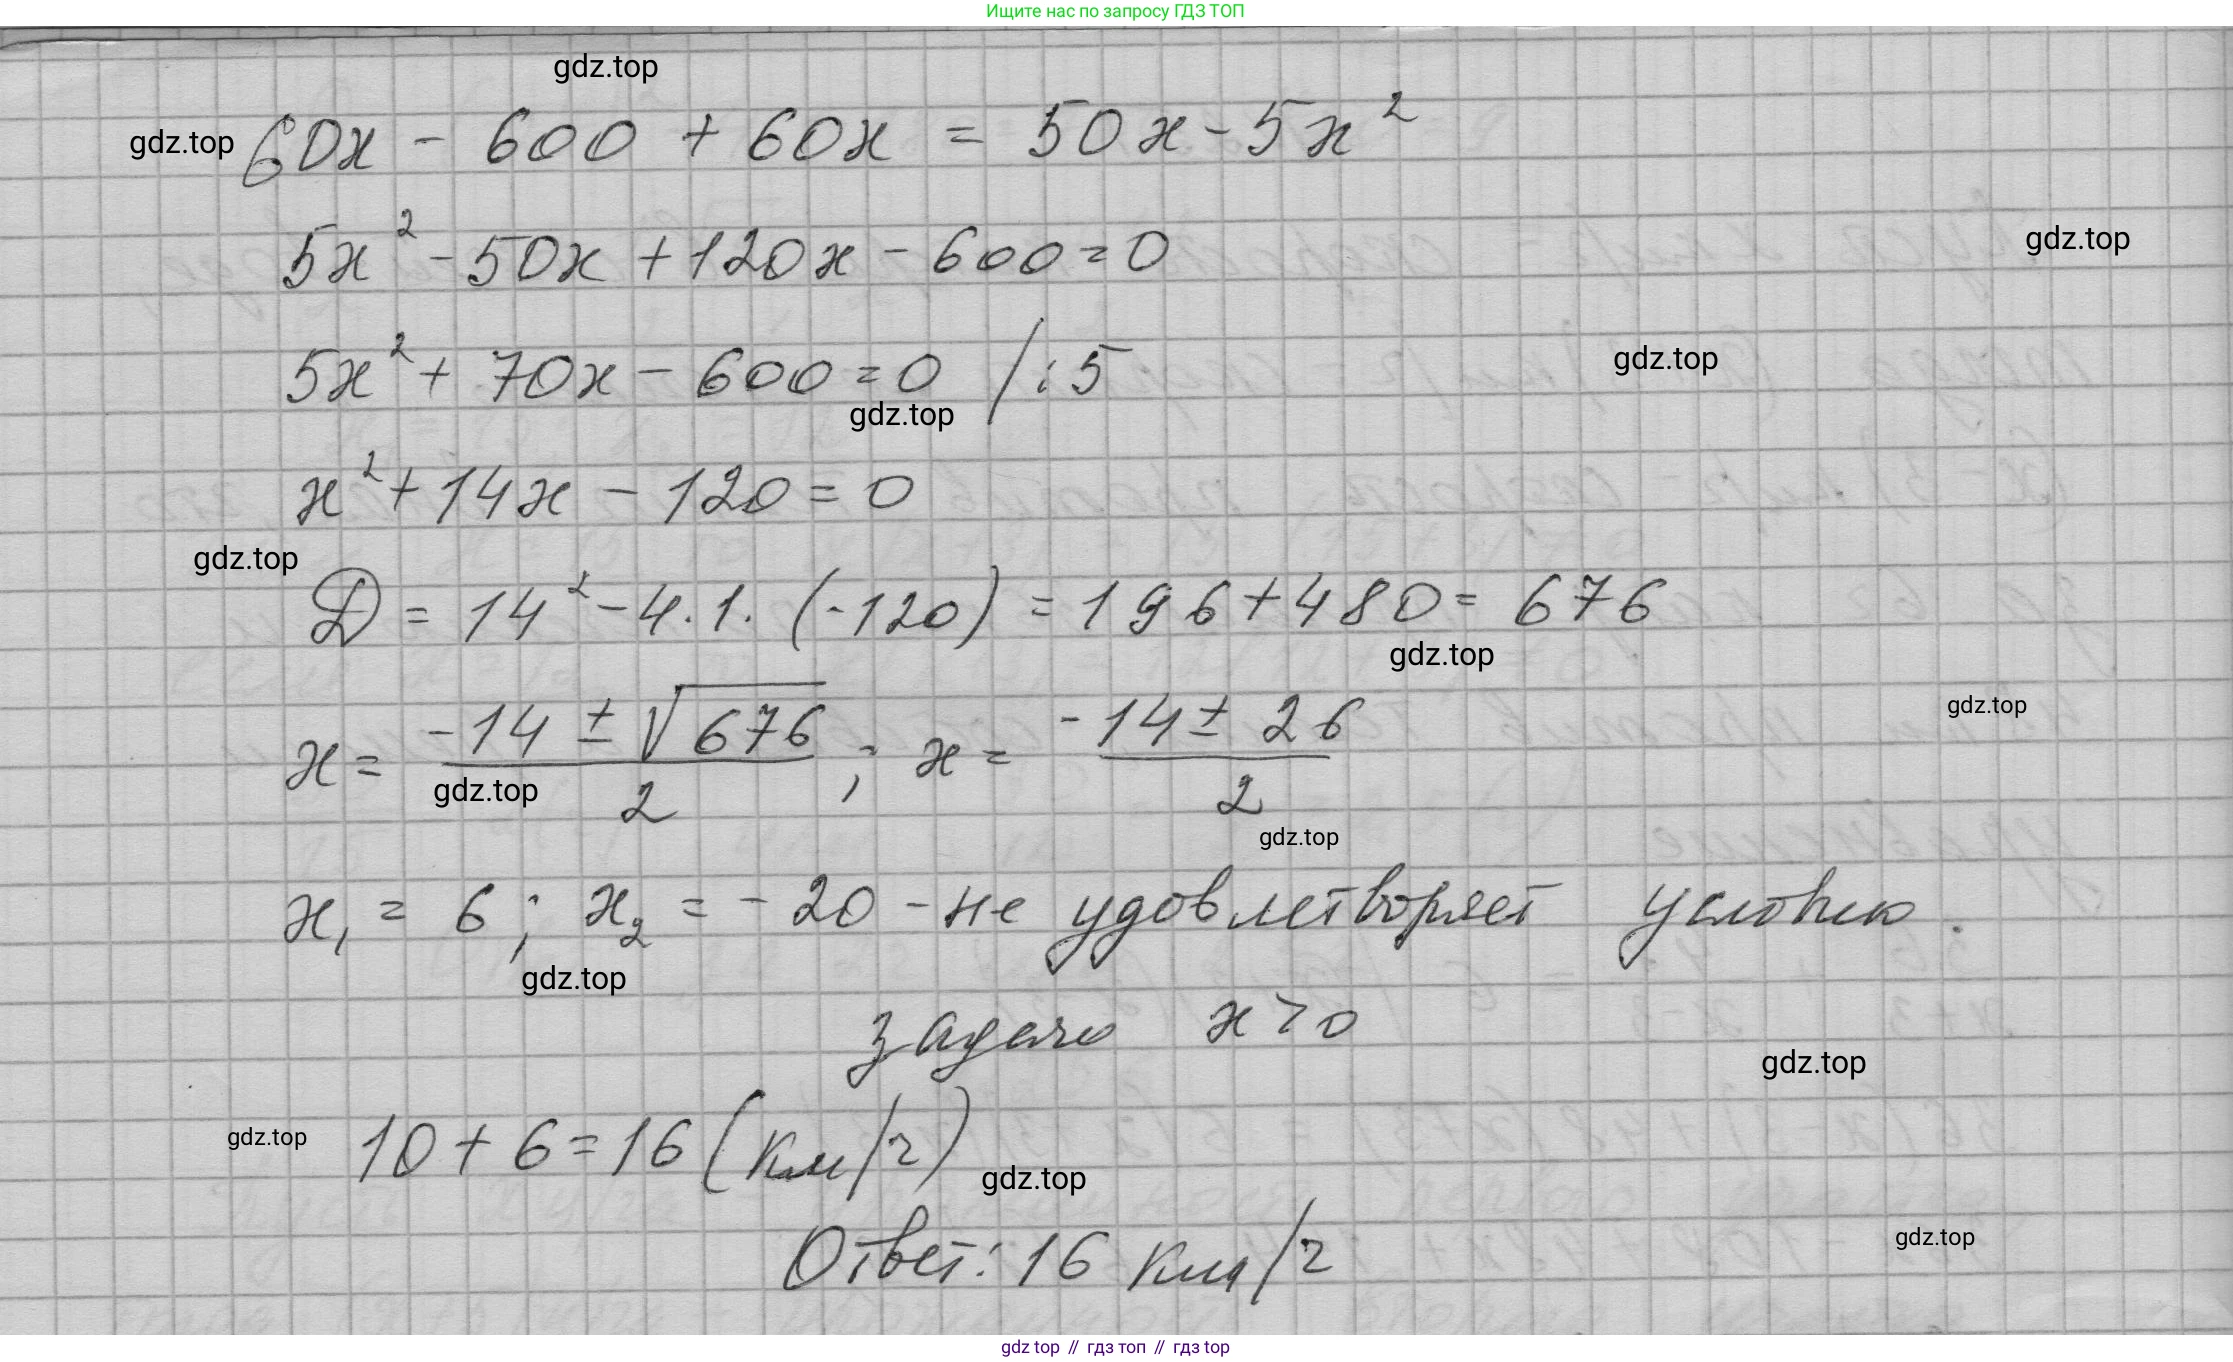 Ищите нас по запросу ГДЗ ТОП
gdz.top
gdz.top
60x - 600 + 60x = 50x - 5x²
gdz.top
5x² - 50x + 120x - 600 = 0
gdz.top
5x² + 70x - 600 = 0 / : 5
gdz.top
x² + 14x - 120 = 0
gdz.top
D = 14² - 4 · 1 · (-120) = 196 + 480 = 676
gdz.top
gdz.top
x = (-14 ± √676)/2 ; x = (-14 ± 26)/2
gdz.top
gdz.top
x₁ = 6 ; x₂ = -20 - не удовлетворяет условию
gdz.top
задачи x > 0
gdz.top
gdz.top
10 + 6 = 16 (км/ч)
gdz.top
gdz.top
Ответ: 16 км/ч
gdz.top // гдз топ // гдз top